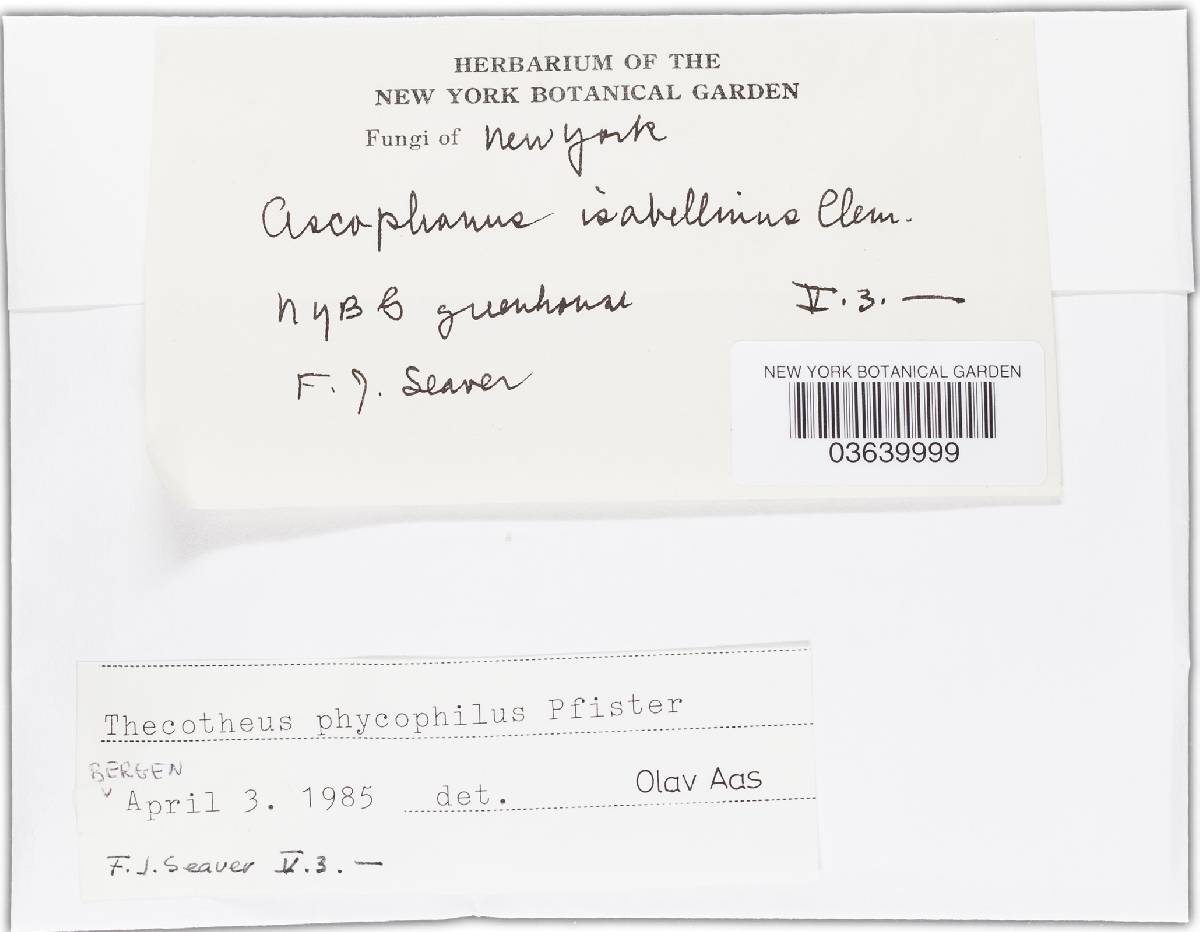 HERBARIUM OF THE
NEW YORK BOTANICAL GARDEN
Fungi of New York
Ascophanus isabellinus Clem.
NYBG greenhouse V.3.—
F. J. Seaver
NEW YORK BOTANICAL GARDEN
03639999
Thecotheus phycophilus Pfister
BERGEN
April 3. 1985 det. Olav Aas
F.J. Seaver V.3.—